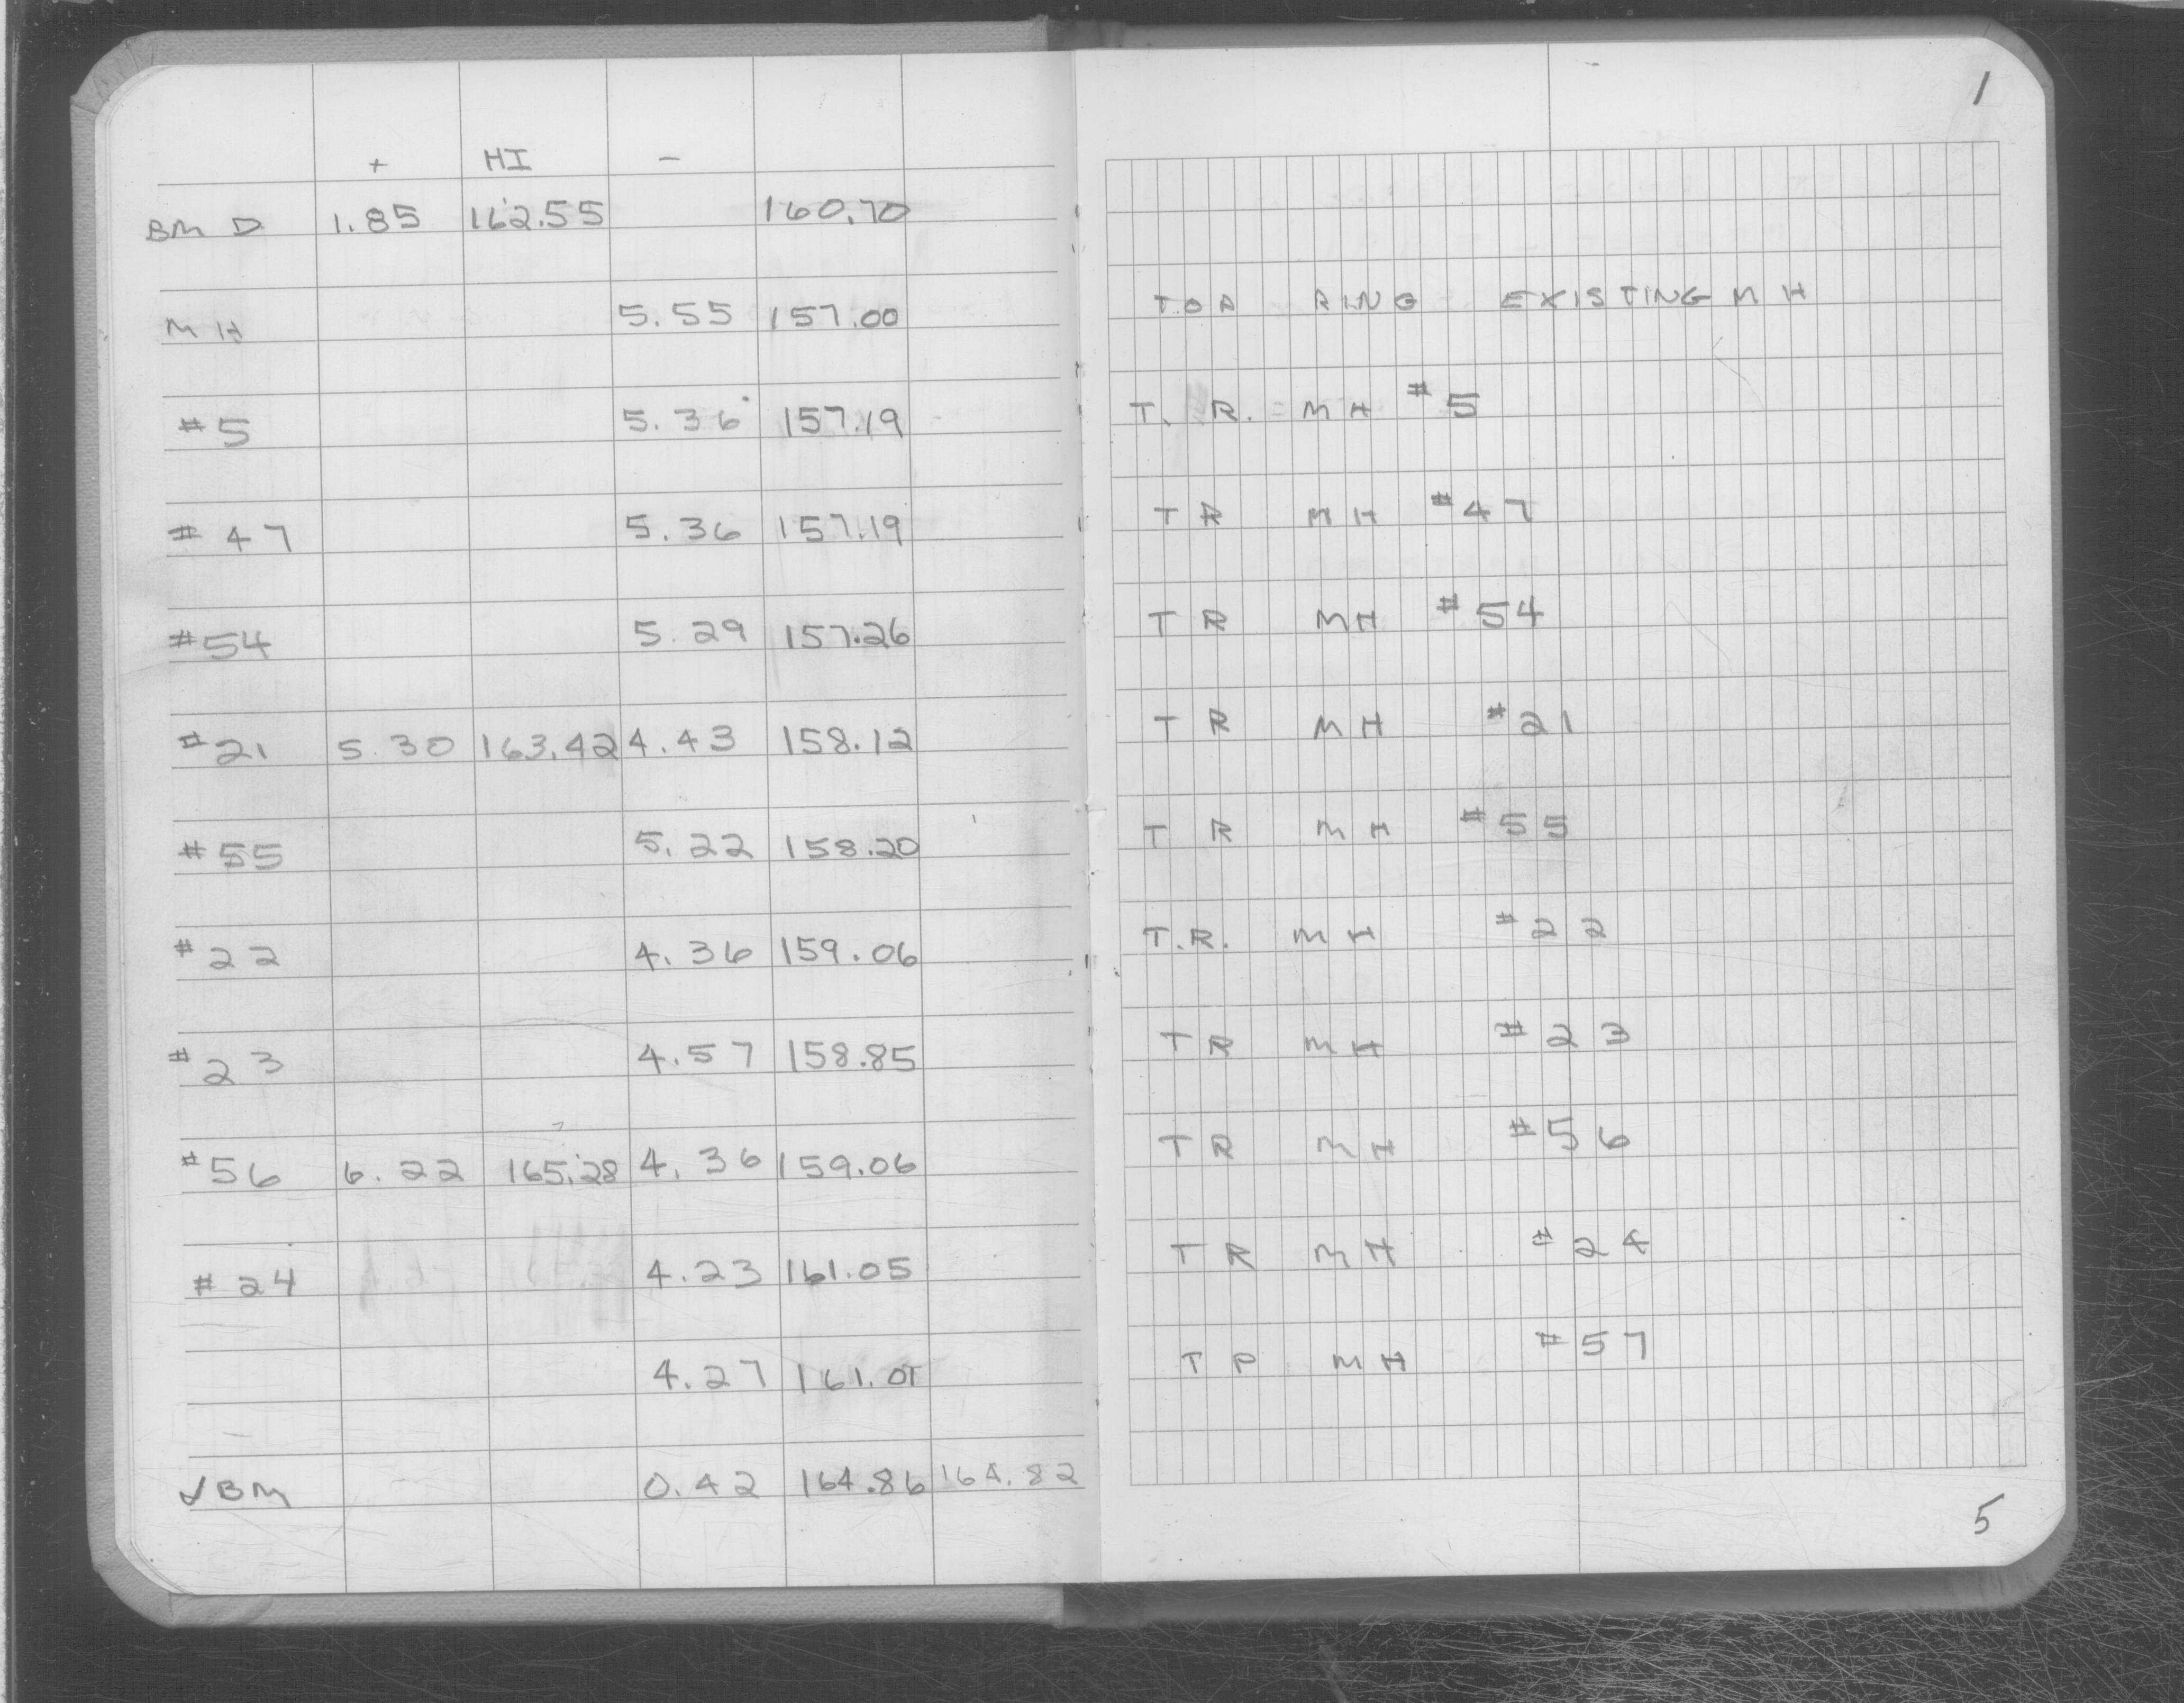 + HI -
BM D 1.85 162.55 160.70
MH 5.55 157.00
#5 5.36 157.19
#47 5.36 157.19
#54 5.29 157.26
#21 5.30 163.42 4.43 158.12
#55 5.22 158.20
#22 4.36 159.06
#23 4.57 158.85
#56 6.22 165.28 4.36 159.06
#24 4.23 161.05
4.27 161.01
√BM 0.42 164.86 164.82
1
TOP RING EXISTING MH
T. R. MH #5
TR MH #47
TR MH #54
TR MH #21
TR MH #55
T.R. MH #22
TR MH #23
TR MH #56
TR MH #24
TP MH #57
5